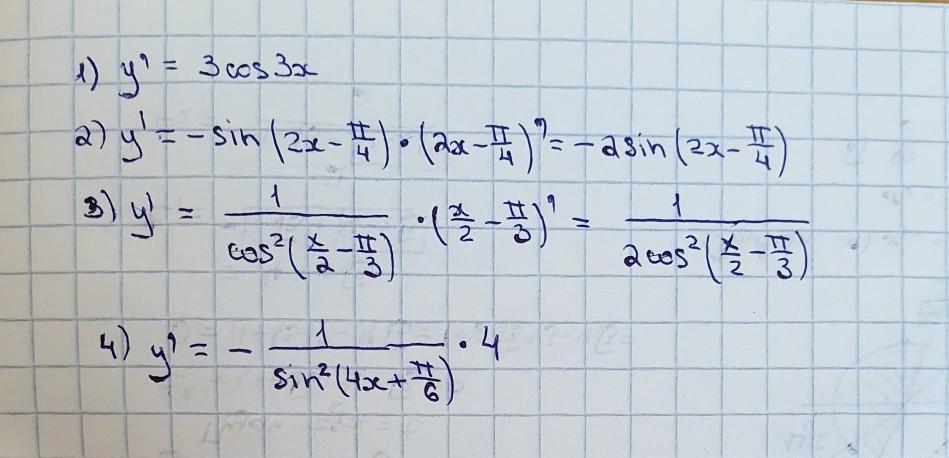 1) y' = 3cos3x
2) y' = -sin(2x - π/4) · (2x - π/4)' = -2sin(2x - π/4)
3) y' = 1/cos²(x/2 - π/3) · (x/2 - π/3)' = 1/2cos²(x/2 - π/3)
4) y' = - 1/sin²(4x + π/6) · 4